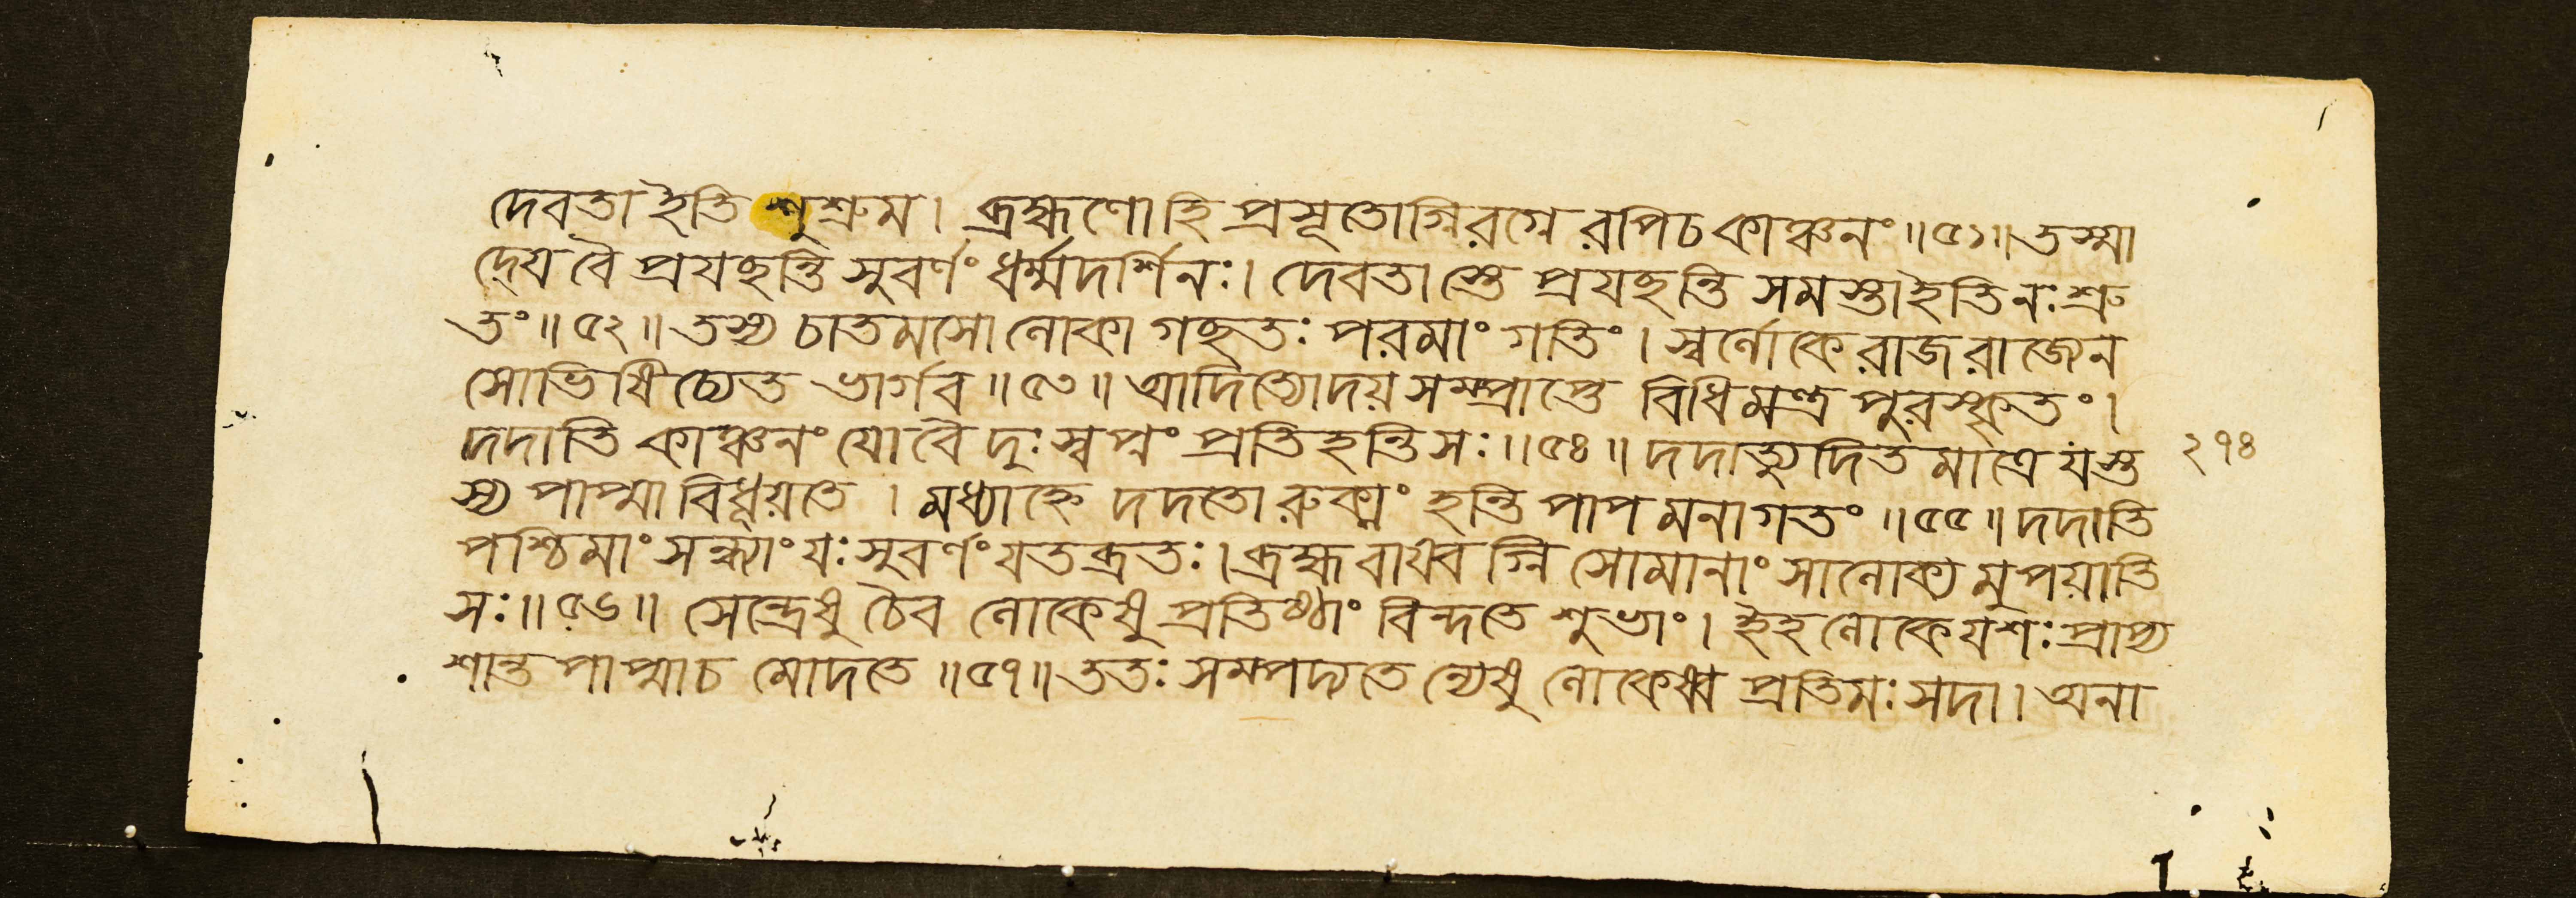 দেবতা ইতি শুশ্রুম। ব্রহ্মণো হি প্রসূতোগ্নিরগ্নে রপিচ কাঞ্চনং॥৫১॥তস্মা
দ্যে বৈ প্রযচ্ছন্তি সুবর্ণং ধর্ম্মদর্শিনঃ। দেবতাস্তে প্রযচ্ছন্তি সমস্তা ইতি নঃ শ্রু
তং॥৫২॥তস্য চাতমসো লোকা গচ্ছতঃ পরমাং গতিং। স্বর্লোকে রাজরাজেন
সোভিষিচ্যেত ভার্গব॥৫৩॥আদিত্যোদয় সম্প্রাপ্তে বিধিমন্ত্র পুরস্কৃতং।
দদাতি কাঞ্চনং যো বৈ দুঃস্বপ্নং প্রতিহন্তি সঃ॥৫৪॥দদাত্যুদিতমাত্রে যস্ত
স্য পাপ্মা বিধূয়তে। মধ্যাহ্নে দদতো রুক্মং হন্তি পাপ মনাগতং॥৫৫॥দদাতি
পশ্চিমাং সন্ধ্যাং যঃ সুবর্ণং যতব্রতঃ। ব্রহ্মবায্বগ্নি সোমানাং সালোক্য মুপয়াতি
সঃ॥৫৬॥সেন্দ্রেষু চৈব লোকেষু প্রতিষ্ঠাং বিন্দতে শুভাং। ইহ লোকে যশঃ প্রাপ্য
শান্ত পাপ্মাচ মোদতে॥৫৭॥ততঃ সম্পদ্যতে ন্যেষু লোকেষ্ব প্রতিমঃ সদা। অনা
২৭৪